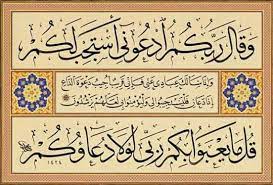 وَقَالَ رَبُّكُمُ ادْعُونِي أَسْتَجِبْ لَكُمْ
وَإِذَا سَأَلَكَ عِبَادِي عَنِّي فَإِنِّي قَرِيبٌ أُجِيبُ دَعْوَةَ الدَّاعِ
إِذَا دَعَانِ فَلْيَسْتَجِيبُوا لِي وَلْيُؤْمِنُوا بِي لَعَلَّهُمْ يَرْشُدُونَ
قُلْ مَا يَعْبَأُ بِكُمْ رَبِّي لَوْلَا دُعَاؤُكُمْ